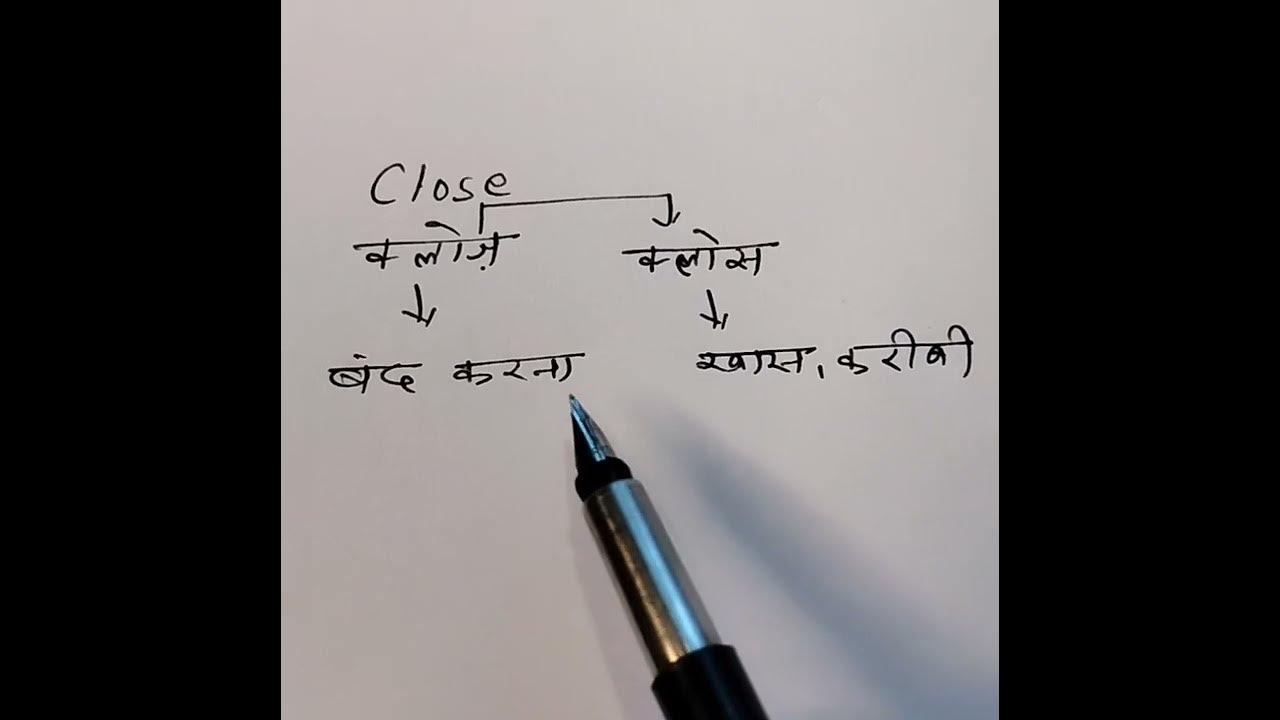 Close
क्लोज़ क्लोस
बंद करना खास, करीबी